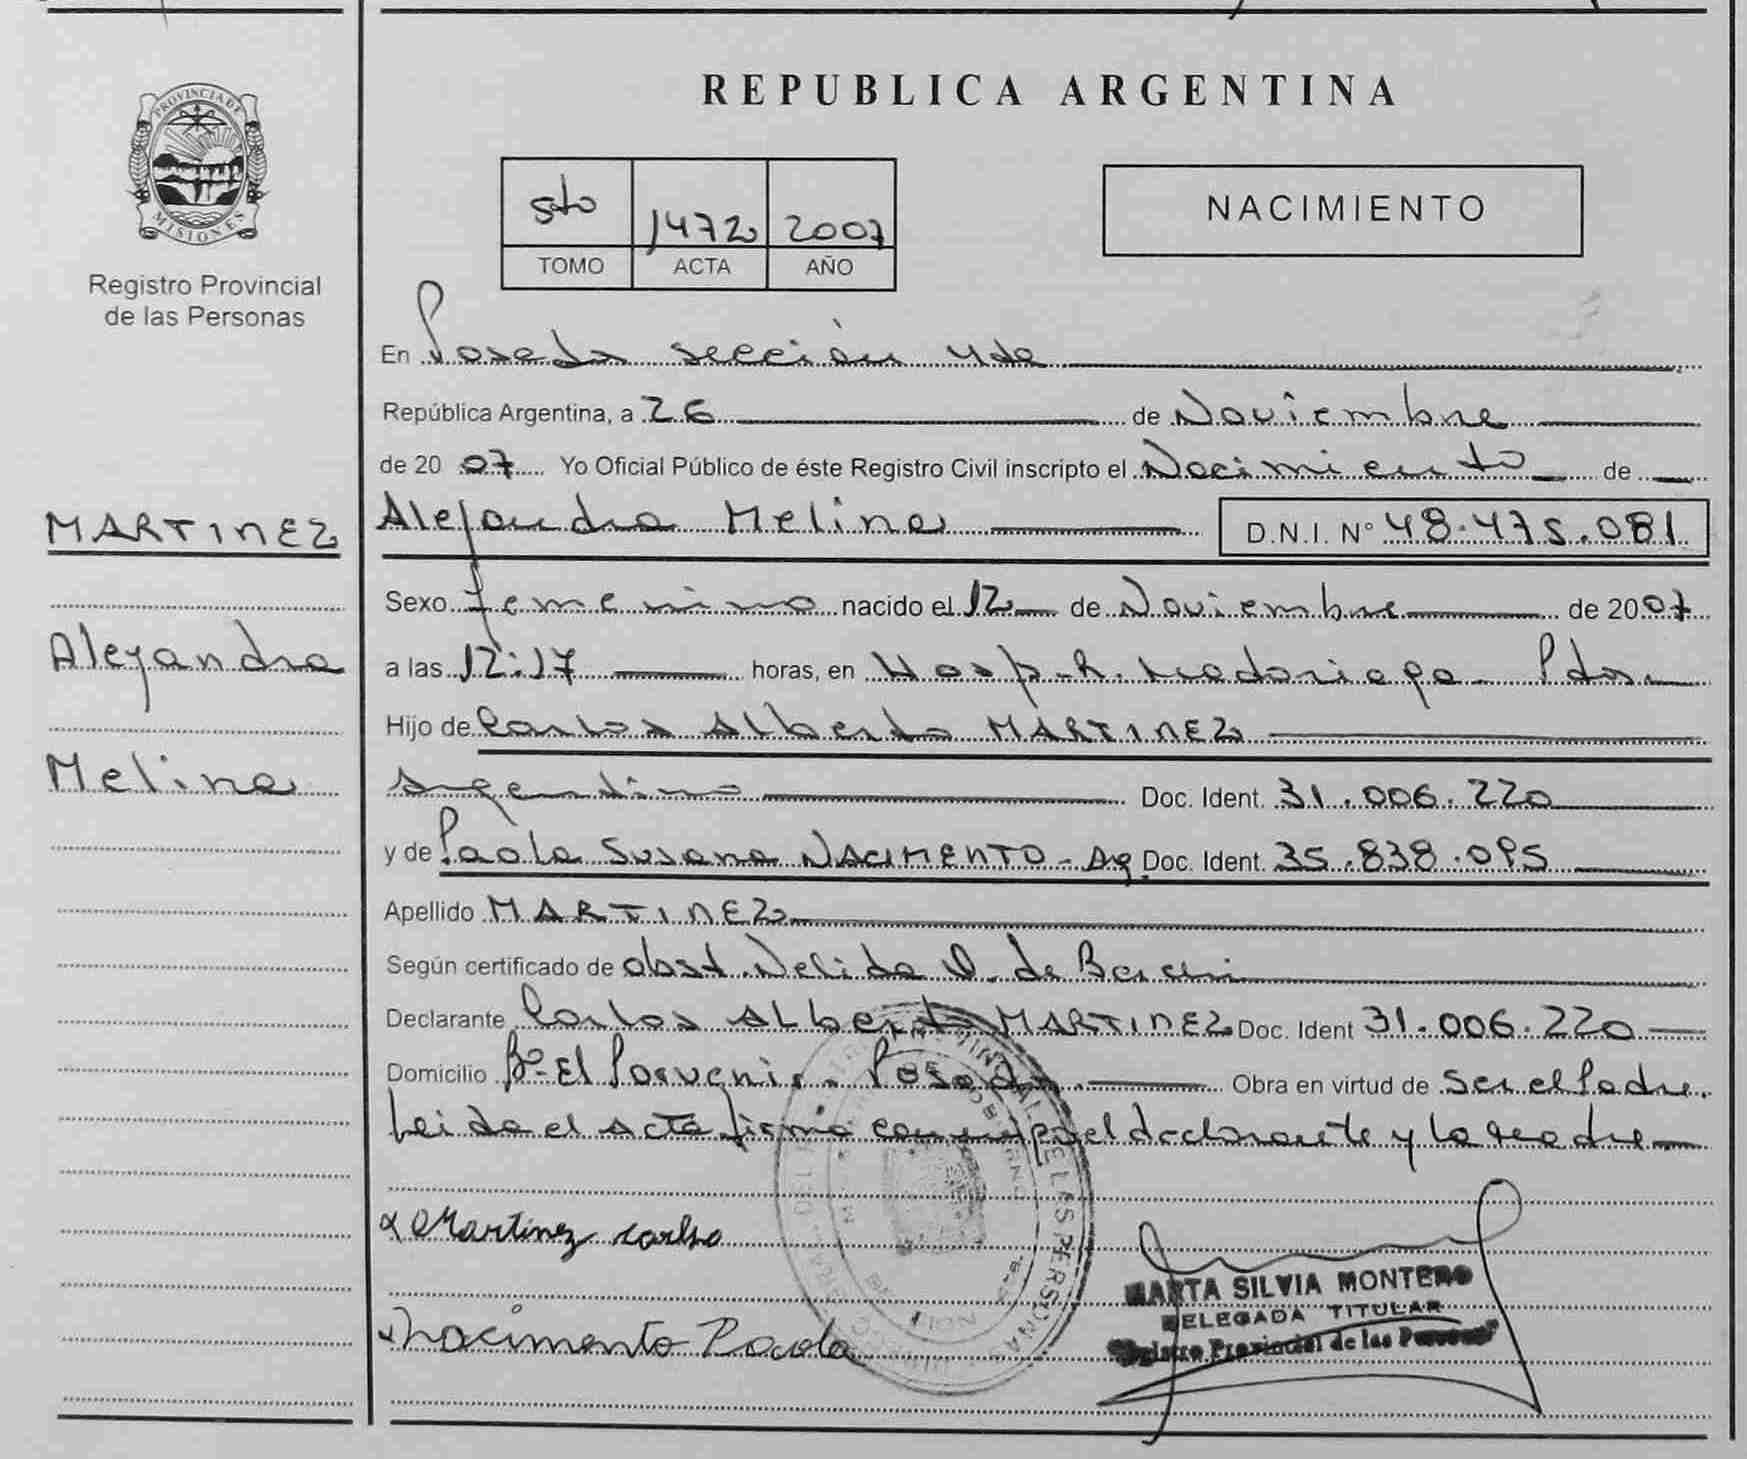 PROVINCIA DE
MISIONES
Registro Provincial
de las Personas
MARTINEZ
Alejandra
Melina
REPUBLICA ARGENTINA
5to 1472 2007
TOMO ACTA AÑO
NACIMIENTO
En Posadas sección 4da
República Argentina, a 26 de Noviembre
de 2007 Yo Oficial Público de éste Registro Civil inscripto el Nacimiento de
Alejandra Melina D.N.I. Nº 48.475.081
Sexo femenino nacido el 12 de Noviembre de 2007
a las 12:17 horas, en Hosp. R. Madariaga - Pdas
Hijo de Carlos Alberto MARTINEZ
Argentino Doc. Ident. 31.006.220
y de Paola Susana NACIMENTO - Ag Doc. Ident. 35.838.095
Apellido MARTINEZ
Según certificado de obst. Nelida D. de
Declarante Carlos ALberto MARTINEZ Doc. Ident 31.006.220
Domicilio Bº El Porvenir. Posadas. Obra en virtud de ser el Padre.
Leida el acta firma conmigo el declarante y la madre
Martinez Carlos
MARTA SILVIA MONTERO
DELEGADA TITULAR
Registro Provincial de las Personas
Nacimento Paola